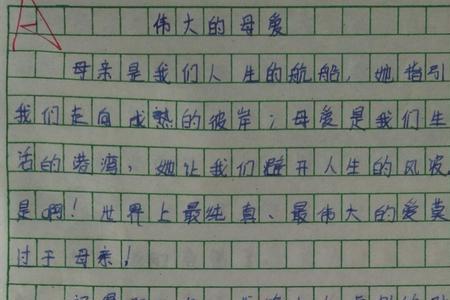 A
伟大的母爱
母亲是我们人生的航船，她指引
我们走向成熟的彼岸；母爱是我们生
活的港湾，她让我们避开人生的风波。
是啊！世界上最纯真、最伟大的爱莫
过于母亲！